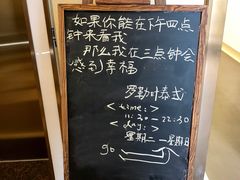 如果你能在下午四点
钟来看我
那么我在三点钟会
感到幸福
罗勒叶泰式
<time:>
11:30—22:30
<day:>
星期二—星期日
go